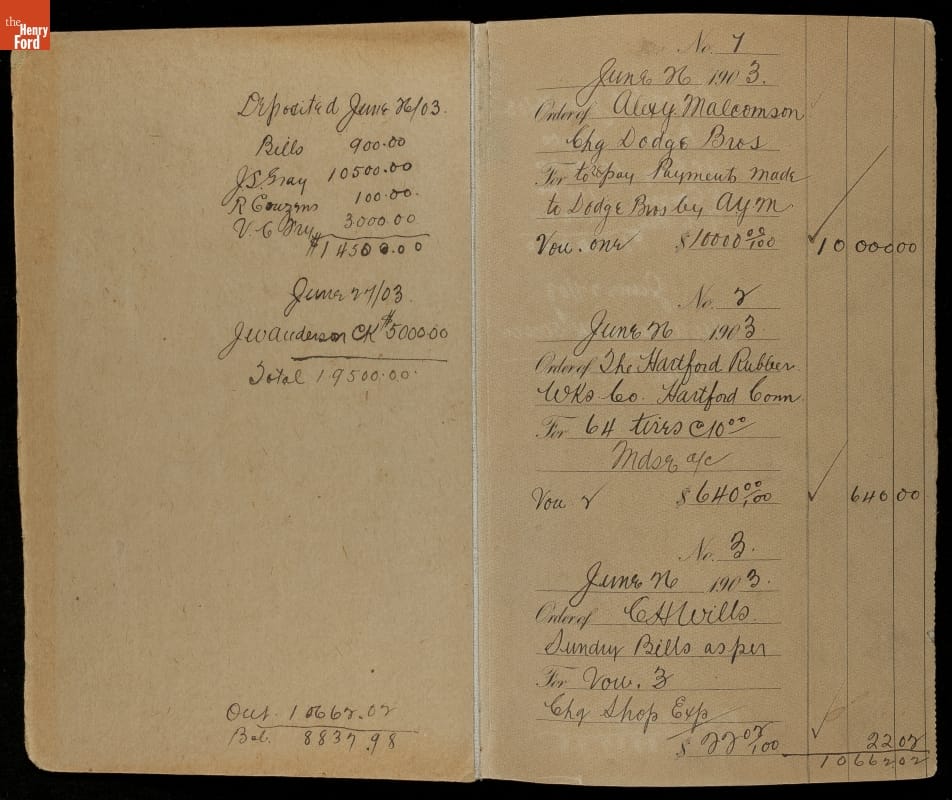 the
Henry
Ford
Deposited June 26/03.
Bills 900.00
J.S. Gray 10500.00
R Couzens 100.00.
V.C. Fry 3000.00
$14500.00
June 27/03.
JW Anderson CK $5000.00
Total 19500.00.
Out. 10662.02
Bal. 8837.98
No. 1
June 26 1903.
Order of Alexy. Malcomson
Chg Dodge Bros
For to repay Payments made
to Dodge Bros by AyM
Vou. one $10000 00/100 10 000 00
No. 2
June 26 1903
Order of The Hartford Rubber
Wks Co. Hartford Conn.
For 64 tires @ 10 00
Mdse a/c
Vou 2 $640 00/100 640 00
No. 3.
June 26 1903.
Order of C H Wills.
Sundry Bills as per
For Vou. 3
Chg Shop Exp
$ 22 02/100 22 02
10662 02